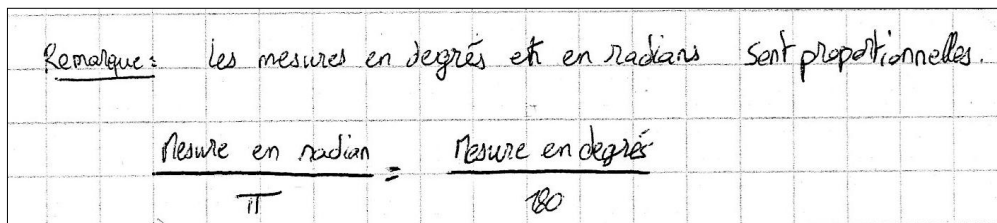 Remarque : les mesures en degrés et en radians sont proportionnelles.
Mesure en radian / π = Mesure en degrés / 180